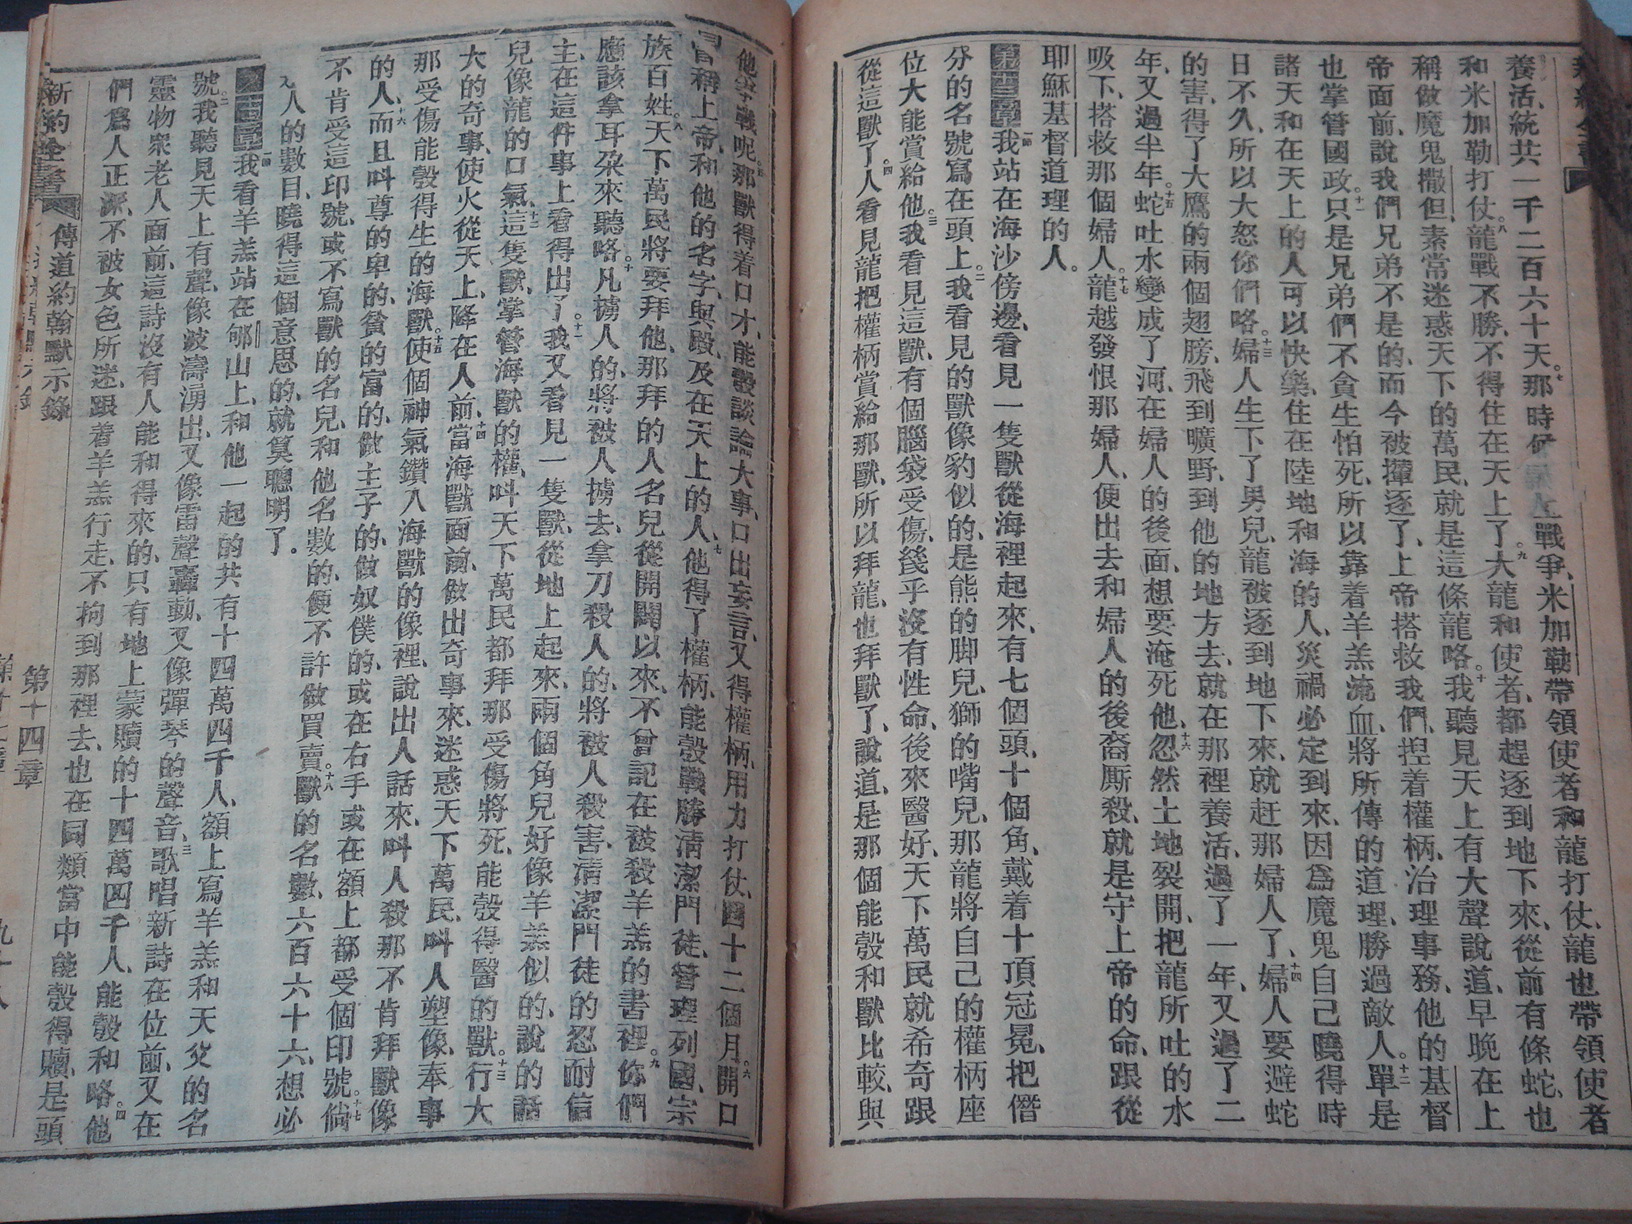 養活、統共一千二百六十天。七那時候、天上戰爭、米加勒帶領使者和龍打仗、龍也帶領使者
和米加勒打仗。八龍戰不勝、不得住在天上了。九大龍和使者、都趕逐到地下來、從前有條蛇、也
稱做魔鬼撒但、素常迷惑天下的萬民、就是這條龍略。十我聽見天上有大聲說道、早晚在上
帝面前、說我們兄弟不是的、而今被攆逐了、上帝搭救我們、揑着權柄、治理事務、他的基督
也掌管國政。十一只是兄弟們不貪生怕死、所以靠着羊羔流血、將所傳的道理、勝過敵人。十二單是
諸天和在天上的人、可以快樂、住在陸地和海的人、災禍必定到來、因爲魔鬼自己曉得時
日不久、所以大怒你們略。十三婦人生下了男兒、龍被逐到地下來、就赶那婦人了。十四婦人要避蛇
的害、得了大鷹的兩個翅膀、飛到曠野、到他的地方去、就在那裡養活、過了一年、又過了二
年、又過半年。十五蛇吐水變成了河、在婦人的後面、想要淹死他。十六忽然土地裂開、把龍所吐的水
吸下、搭救那個婦人。十七龍越發恨那婦人、便出去和婦人的後裔厮殺、就是守上帝的命、跟從
耶穌基督道理的人。
第十三章一節我站在海沙傍邊、看見一隻獸從海裡起來、有七個頭、十個角、戴着十頂冠冕、把僭
分的名號寫在頭上。二我看見的獸像豹似的、是熊的脚兒、獅的嘴兒、那龍將自己的權柄座
位大能賞給他。三我看見這獸、有個腦袋受傷、幾乎沒有性命、後來醫好、天下萬民就希奇跟
從這獸了。四人看見龍把權柄賞給那獸、所以拜龍、也拜獸了、說道、是那個能彀和獸比較、與
他爭戰呢。五那獸得着口才、能彀談論大事、口出妄言、又得權柄、用力打仗、四十二個月。六開口
冒稱上帝、和他的名字、與殿、及在天上的人。七他得了權柄、能彀戰勝清潔門徒、管理列國、宗
族百姓。八天下萬民將要拜他、那拜的人名兒、從開闢以來、不曾記在被殺羊羔的書裡。九你們
應該拿耳朶來聽略。十凡擄人的、將被人擄去、拿刀殺人的、將被人殺害、清潔門徒的忍耐信
主、在這件事上看得出了。十一我又看見一隻獸、從地上起來、兩個角兒好像羊羔似的、說的話
兒像龍的口氣。十二這隻獸掌管海獸的權、叫天下萬民都拜那受傷將死、能彀得醫的獸。十三行大
大的奇事、使火從天上、降在人前。十四當海獸面前、做出奇事來、迷惑天下萬民、叫人塑像、奉事
那受傷能彀得生的海獸。十五使個神氣鑽入海獸的像裡、說出人話來、叫人殺那不肯拜獸像
的人。十六而且叫尊的、卑的、貧的、富的、做主子的、做奴僕的、或在右手、或在額上、都受個印號。十七倘
不肯受這印號、或不寫獸的名兒、和他名數的、便不許做買賣。十八獸的名數、六百六十六、想必
人的數目、曉得這個意思的、就算聰明了。
第十四章一節我看羊羔站在郇山上、和他一起的、共有十四萬四千人、額上寫羊羔和天父的名
號。二我聽見天上有聲、像波濤湧出、又像雷聲轟動、又像彈琴的聲音。三歌唱新詩、在位前、又在
靈物衆老人面前、這詩沒有人能和得來的、只有地上蒙贖的十四萬四千人、能彀和略。四他
們爲人正潔、不被女色所迷、跟着羊羔行走、不拘到那裡去、也在同類當中能彀得贖、是頭
新約全書 傳道約翰默示錄 第十四章